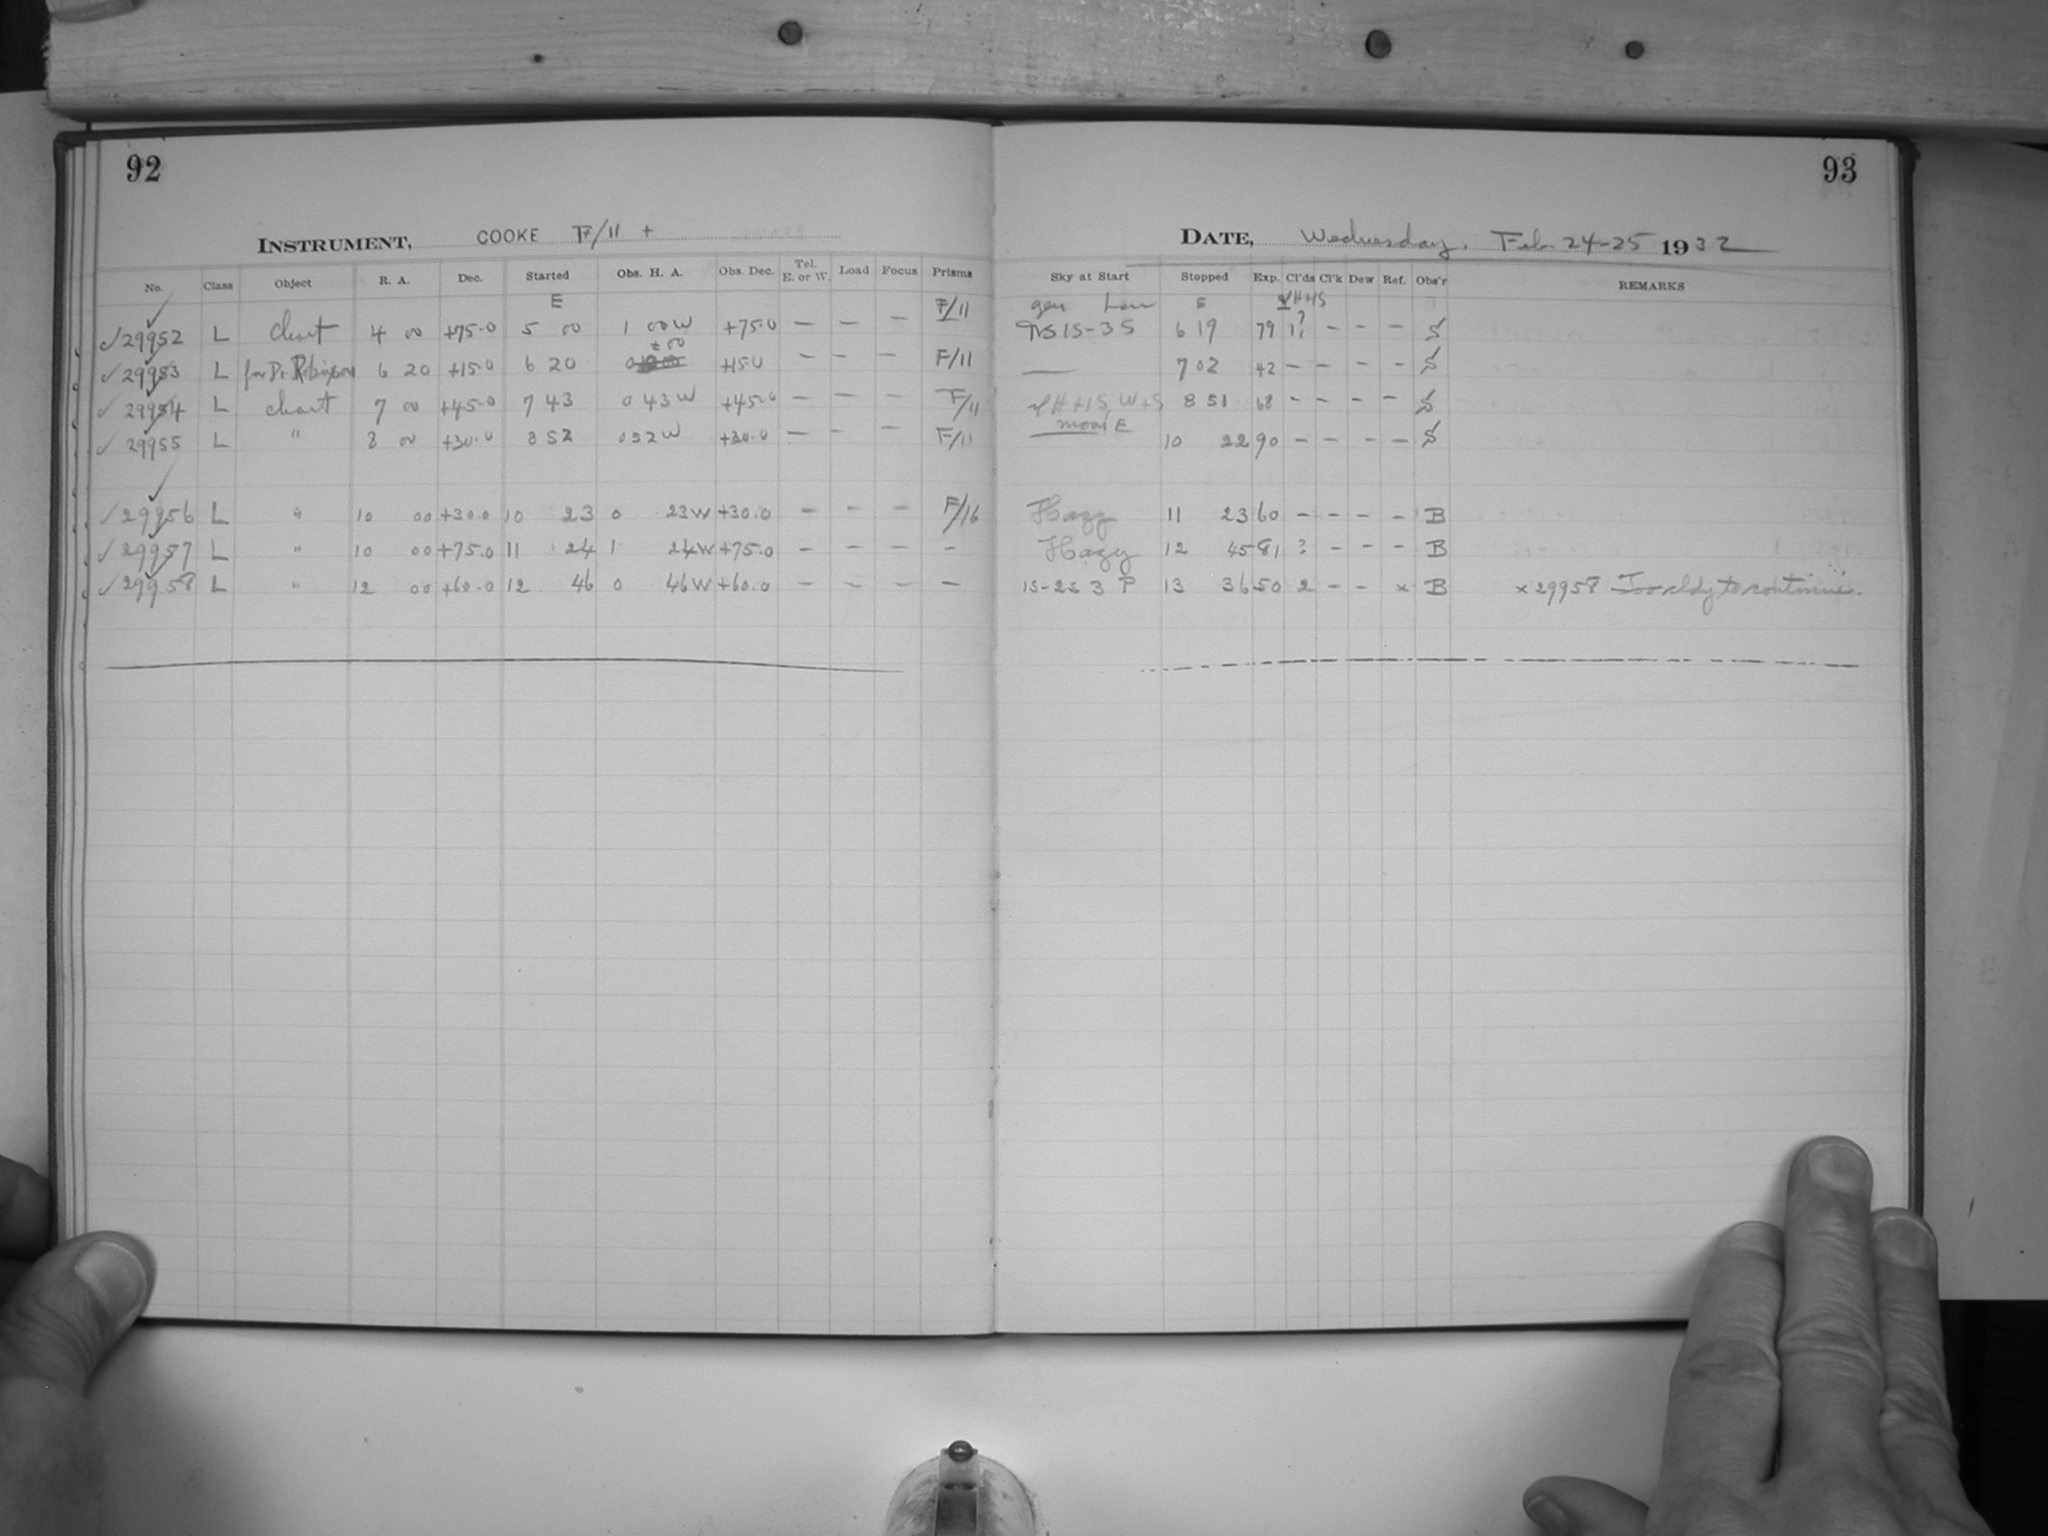 92
INSTRUMENT, COOKE F/11 +
No. Class Object R. A. Dec. Started Obs. H. A. Obs. Dec. Tel. E. or W. Load Focus Prisms
E F/11
✓29952 L chart 4 00 +75.0 5 00 1 00 W +75.0 — — —
± 00
✓29953 L for Dr. Robinson 6 20 +15.0 6 20 0 +15.0 — — — F/11
✓29954 L chart 7 00 +45.0 7 43 0 43 W +45.0 — — — F/11
✓29955 L " 8 00 +30.0 8 52 0 52 W +30.0 — — — F/11
✓29956 L " 10 00 +30.0 10 23 0 23 W +30.0 — — — F/16
✓29957 L " 10 00 +75.0 11 24 1 24 W +75.0 — — — —
✓29958 L " 12 00 +60.0 12 46 0 46 W +60.0 — — — —
93
DATE, Wednesday. Feb. 24-25 1932
Sky at Start Stopped Exp. Cl'ds Cl'k Dew Ref. Obs'r REMARKS
gen E
1S-3S 6 19 79 1? — — — S
— 7 02 42 — — — — S
H+1S, W+S 8 51 68 — — — — S
moon E
10 22 90 — — — — S
Hazy 11 23 60 — — — — B
Hazy 12 45 81 ? — — — B
1S-2S 3 P 13 36 50 2 — — × B × 29958 Too cldy to continue.